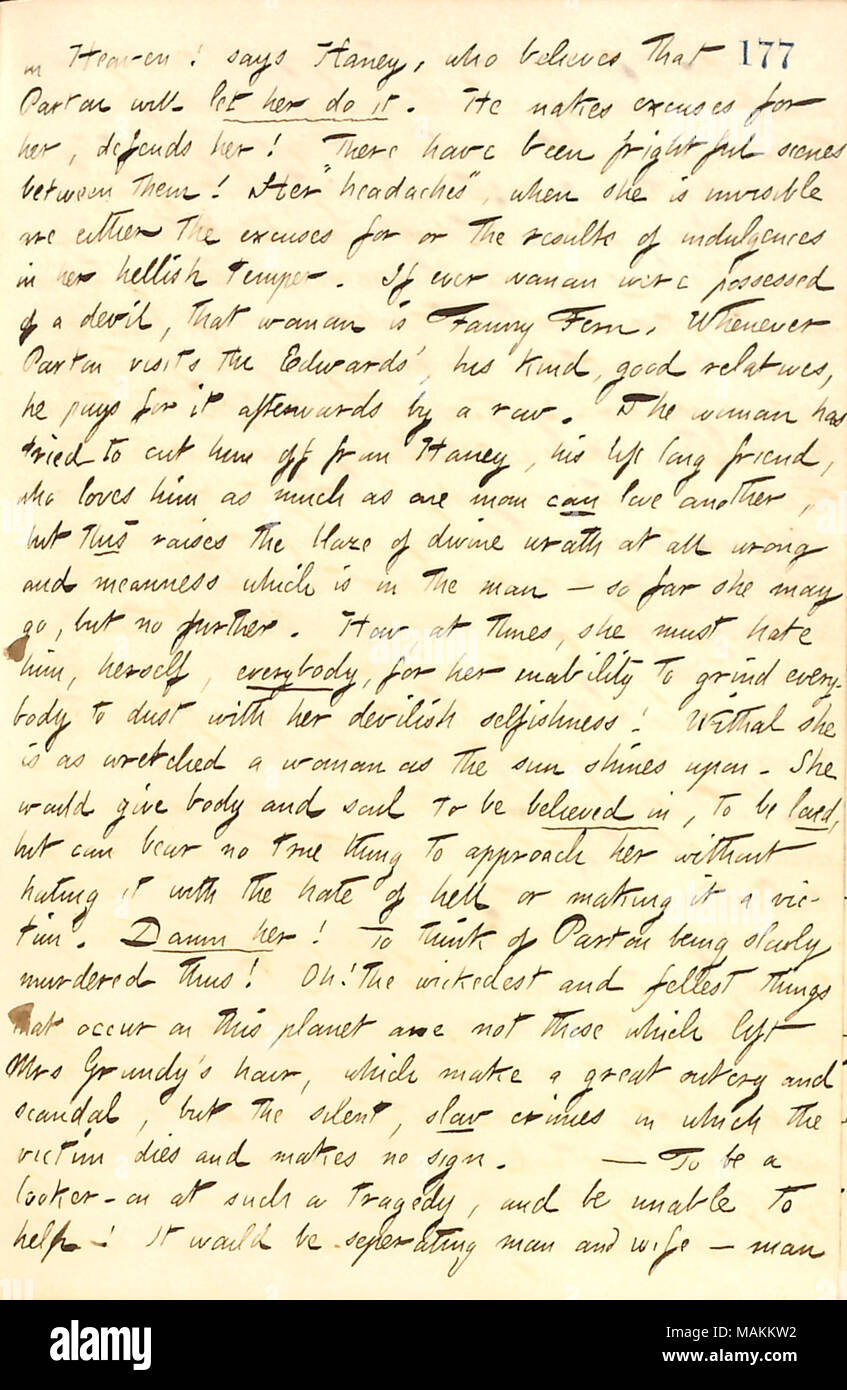 in Heaven! says Haney, who believes that 177
Parton will let her do it. He makes excuses for
her, defends her! There have been frightful scenes
between them! Her "headaches", when she is invisible
are either the excuses for or the results of indulgences
in her hellish temper. If ever woman were possessed
of a devil, that woman is Fanny Fern. Whenever
Parton visits the Edwards', his kind, good relatives,
he pays for it afterwards by a row. The woman has
tried to cut him off from Haney, his life long friend,
who loves him as much as one man can love another,
but this raises the blaze of divine wrath at all wrong
and meanness which is in the man — so far she may
go, but no further. How, at times, she must hate
him, herself, everybody, for her inability to grind every-
body to dust with her devilish selfishness! Withal she
is as wretched a woman as the sun shines upon. She
would give body and soul to be believed in, to be loved,
but can bear no true thing to approach her without
hating it with the hate of hell or making it a vic-
tim. Damn her! To think of Parton being slowly
murdered thus! Oh! the wickedest and fellest things
that occur on this planet are not those which lift
Mrs Grundy's hair, which make a great outcry and
scandal, but the silent, slow crimes in which the
victim dies and makes no sign. — To be a
looker-on at such a tragedy, and be unable to
help! It would be seperating man and wife — man
alamy
Image ID: MAKKW2
www.alamy.com